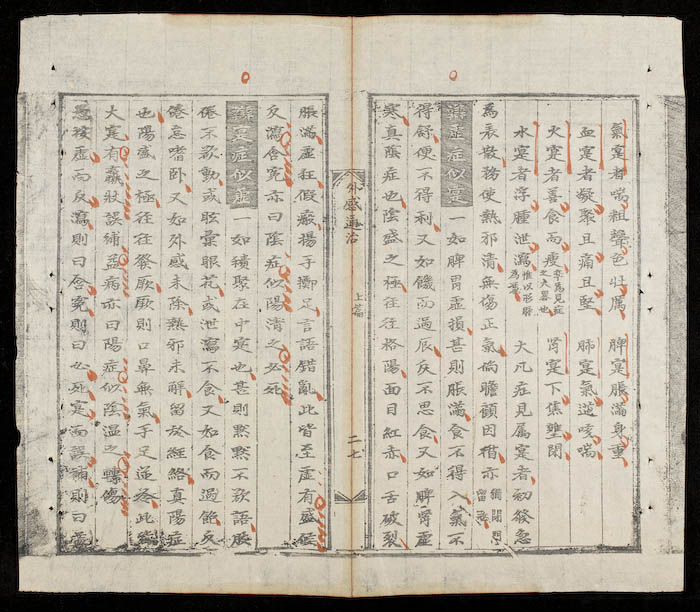 氣寔者喘粗聲色壯属　脾寔脹滿身重
血寔者凝聚且痛且堅　肺寔氣逆咳喘
火寔者善食而瘦　腎寔下焦壅閉
水寔者浮腫泄瀉　大凡症見属寔者初發急
為表散務使熱邪清無傷正氣倘瞻顧因循亦
辨虛症似寔　一如脾胃虛損甚則脹滿食不得入氣不
得舒便不得利又如饑而過辰反不思食又如脾胃虛
寒真陰症也陰盛之極往往格陽面目紅赤口舌破裂
外感通治　上篇　二七
脹滿虛狂假癥揚子擲足言語錯亂此皆至虛有盛候
反瀉含寃亦曰陰症似陽清之必死
辨寔症似虛　一如積聚在中寔也甚則黙黙不欲語肢
倦不欲動或眩暈眼花或泄瀉不食又如食而過飽反
倦怠嗜卧又如外感未除熱邪未解留於經絡真陽症
也陽盛之極往往發厥厥則口鼻無氣手足逆冷此
大寔有羸狀誤補益病亦曰陽症似陰溫之轉傷
愚按虛而反瀉則曰含寃則曰必死寔而誤補則曰